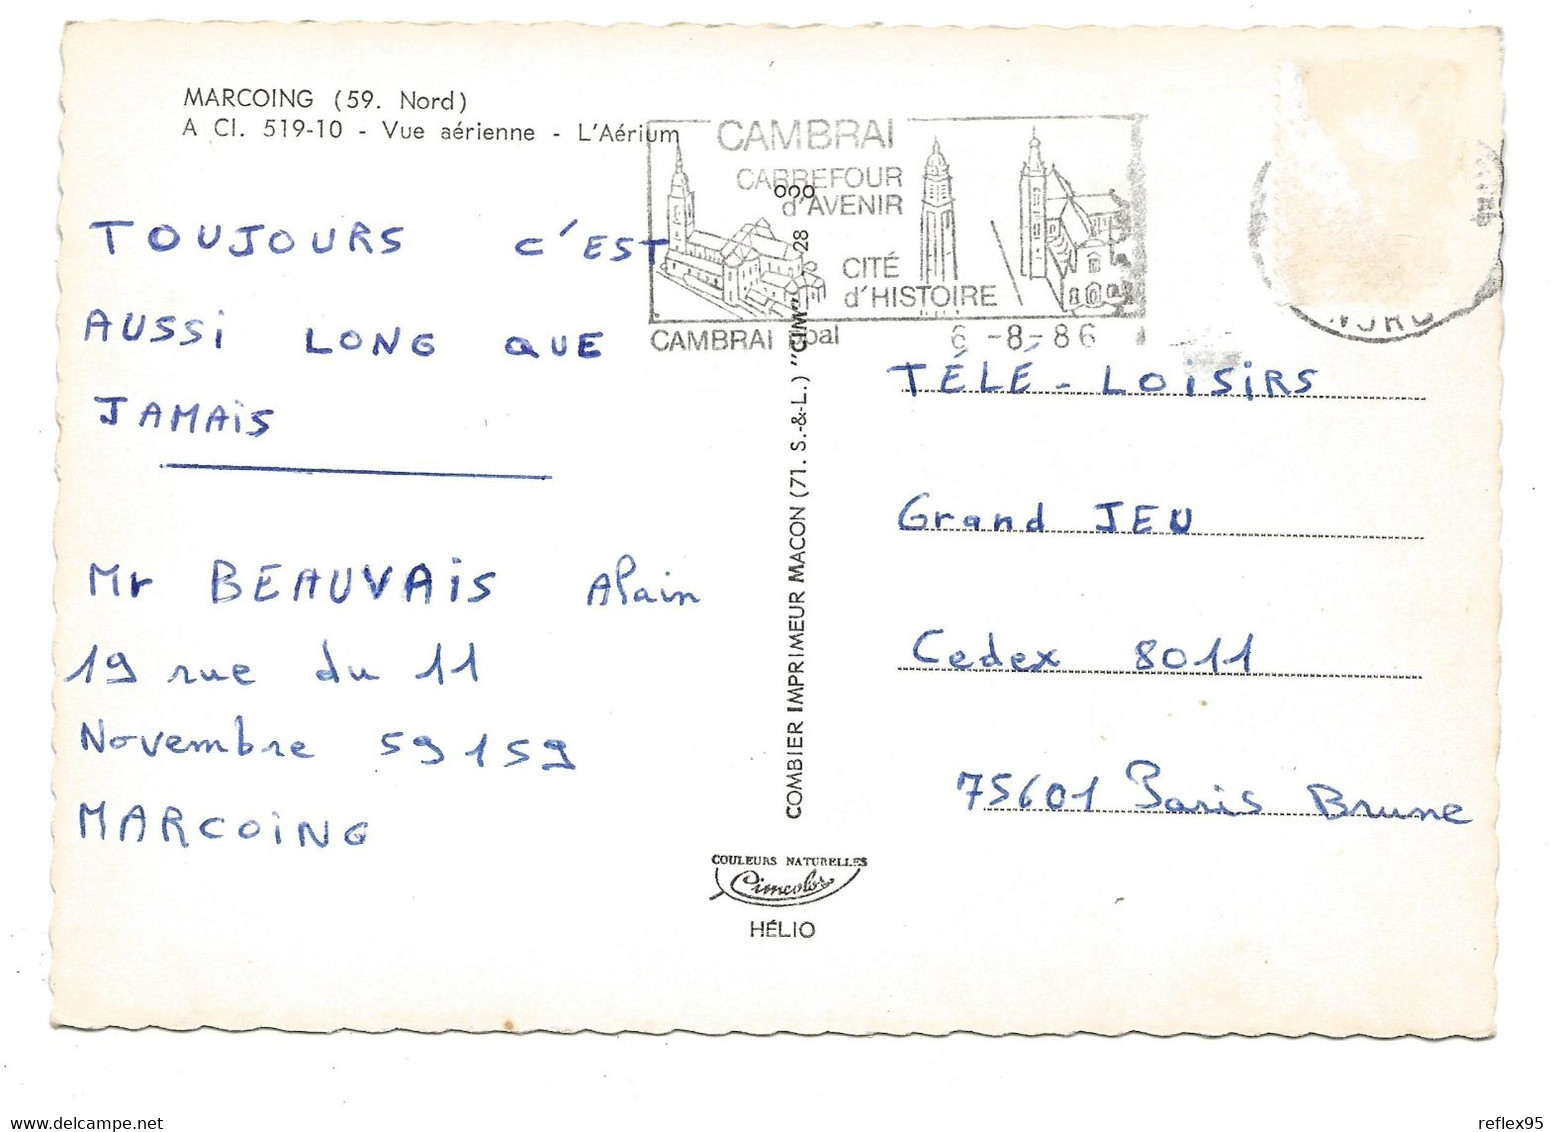 MARCOING (59. Nord)
A Cl. 519-10 - Vue aérienne - L'Aérium
CAMBRAI
CARREFOUR
d'AVENIR
CITÉ
d'HISTOIRE
CAMBRAI ppal
6 -8-86
TOUJOURS C'EST
AUSSI LONG QUE
JAMAIS
Mr BEAUVAIS Alain
19 rue du 11
Novembre 59159
MARCOING
COMBIER IMPRIMEUR MACON (71. S.-&-L.) "CIM"
28
COULEURS NATURELLES
Cimcolor
HÉLIO
TÉLÉ - LOISIRS
Grand JEU
Cedex 8011
75601 Paris Brune
reflex95